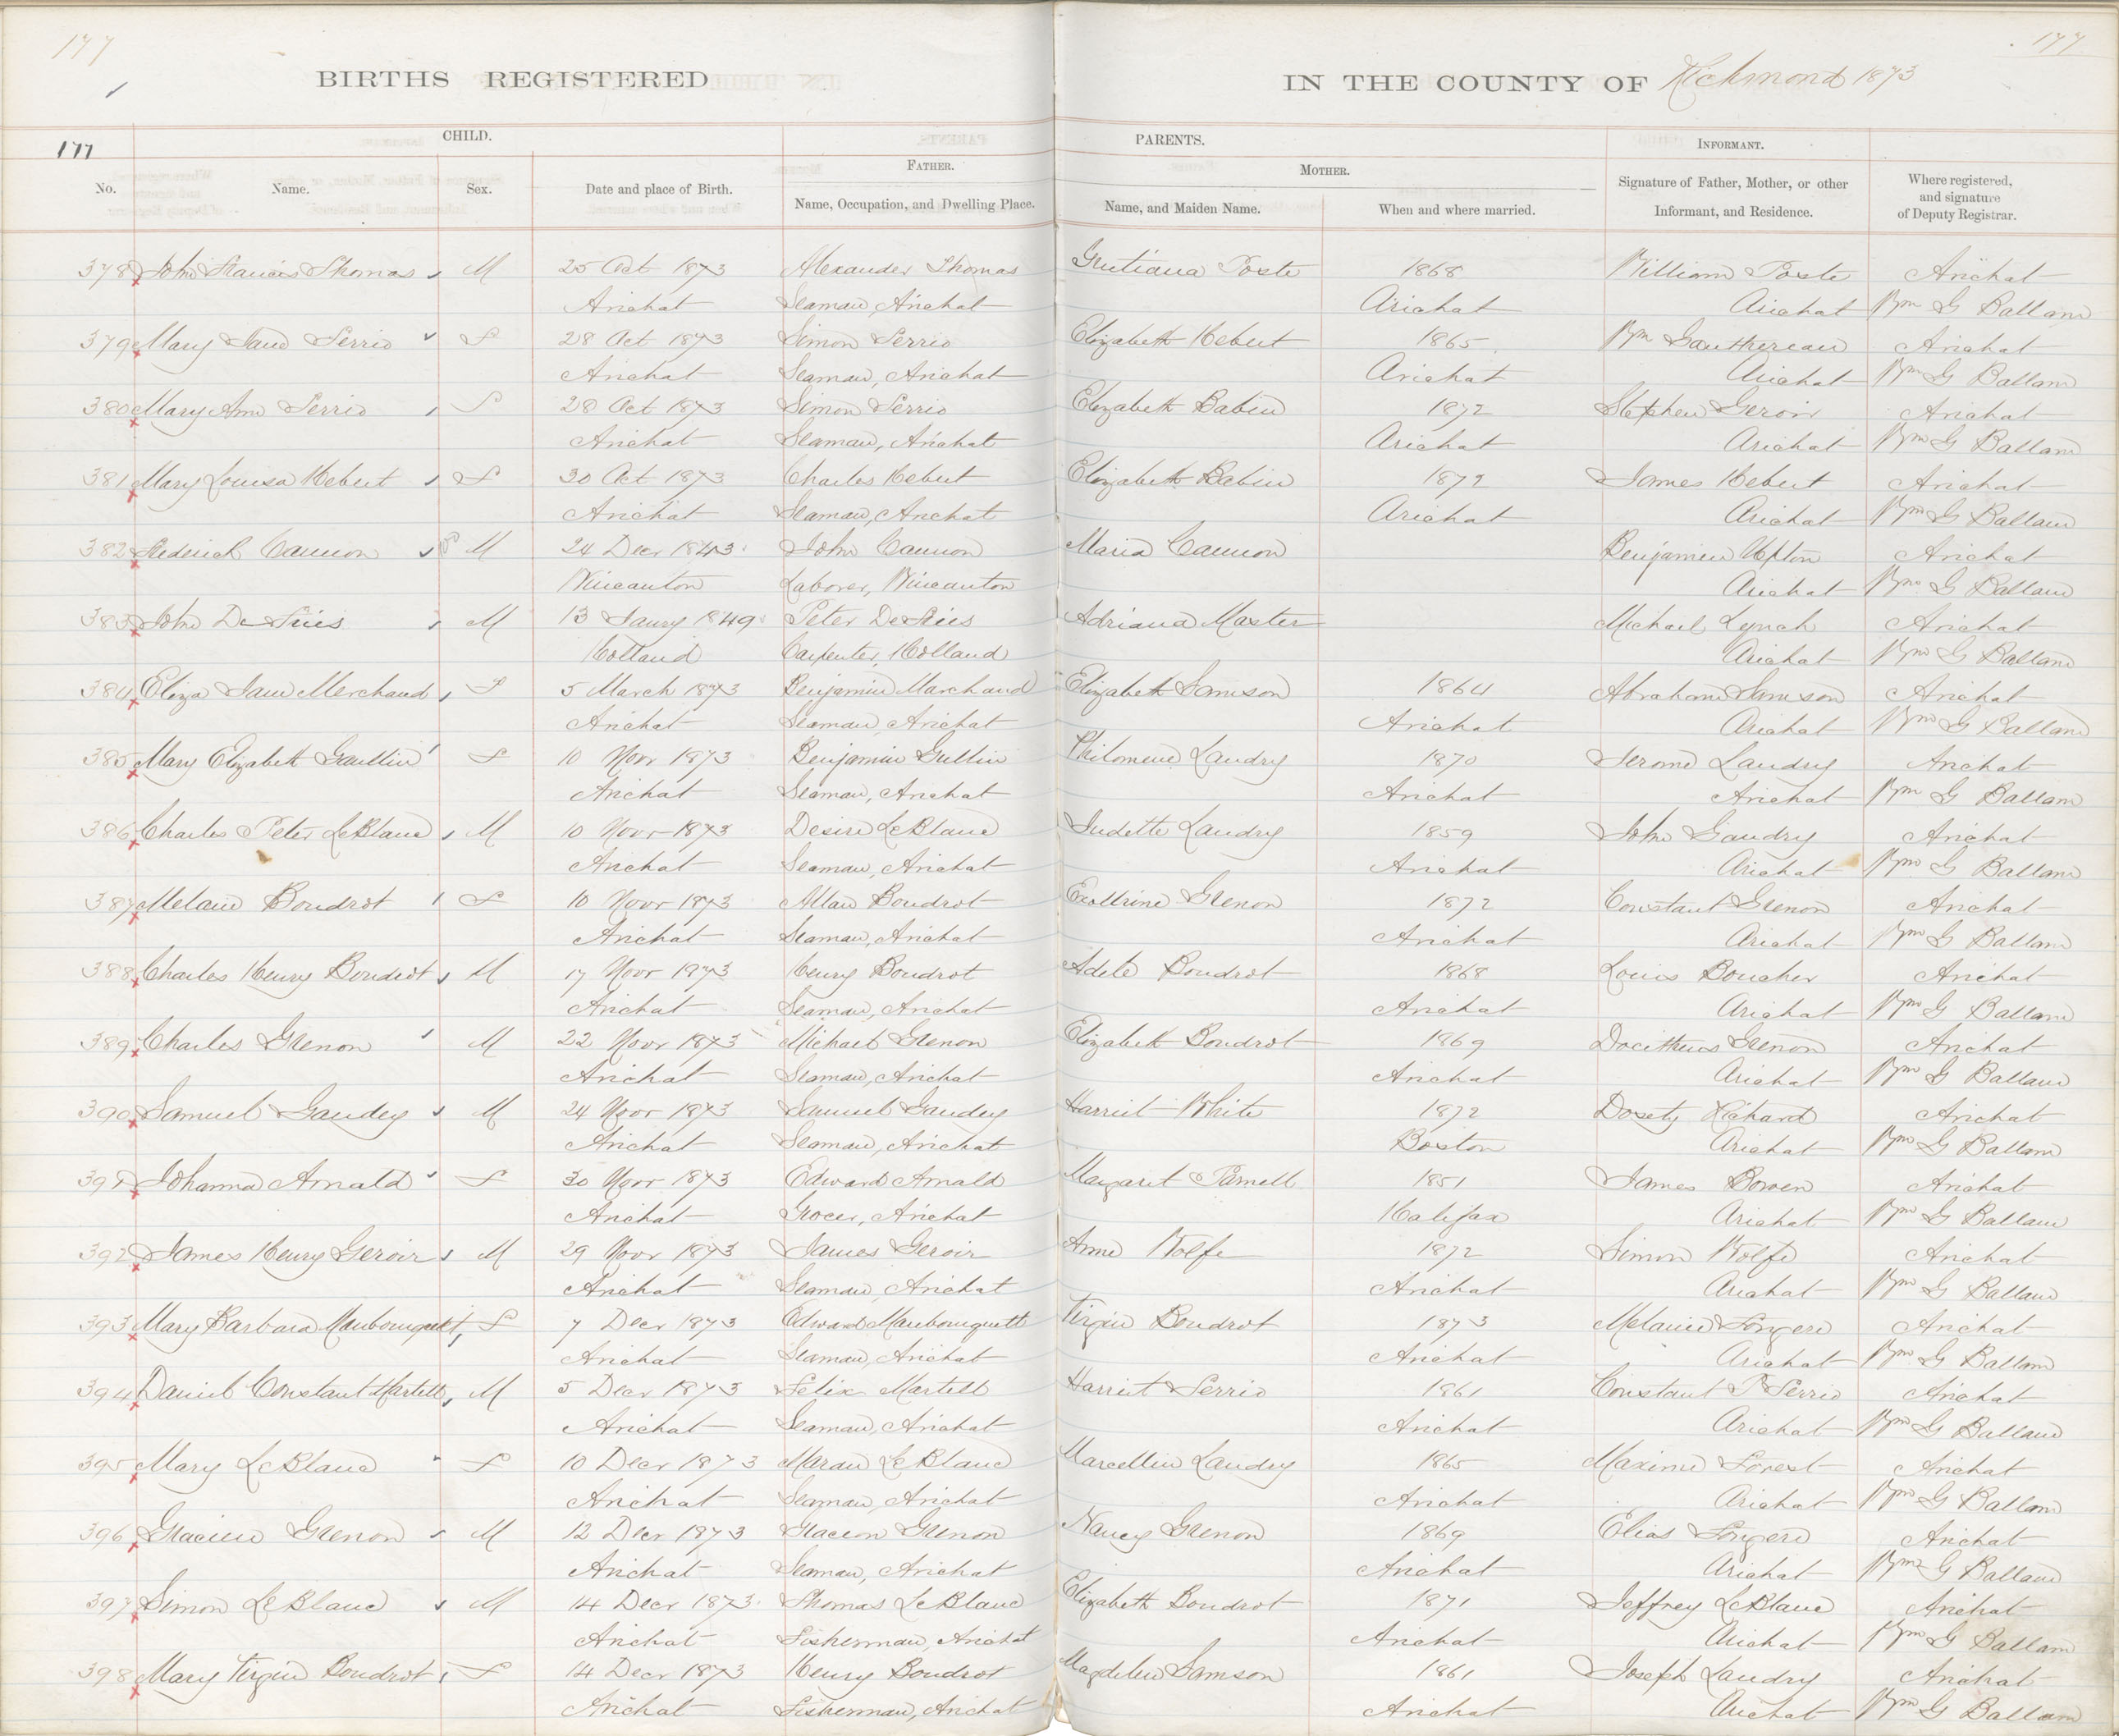 177
177
BIRTHS REGISTERED
IN THE COUNTY OF Richmond 1873
177
CHILD.
PARENTS.
INFORMANT.
FATHER.
MOTHER.
No. Name. Sex. Date and place of Birth. Name, Occupation, and Dwelling Place. Name, and Maiden Name. When and where married. Signature of Father, Mother, or other Informant, and Residence. Where registered, and signature of Deputy Registrar.
378 John Francis Thomas M 25 Oct 1873 Alexander Thomas Poste 1868 William Poste Arichat
Arichat Seaman, Arichat Arichat Arichat Wm G Ballam
379 Mary Jane Ferrio F 28 Oct 1873 Simon Ferrio Elizabeth Hebert 1865 Wm Gouthereau Arichat
Arichat Seaman, Arichat Arichat Arichat Wm G Ballam
380 Mary Ann Ferrio F 28 Oct 1873 Simon Ferrio Elizabeth Babin 1872 Stephen Geroir Arichat
Arichat Seaman, Arichat Arichat Arichat Wm G Ballam
381 Mary Louisa Hebert F 30 Oct 1873 Charles Hebert Elizabeth Babin 1872 James Hebert Arichat
Arichat Seaman, Arichat Arichat Arichat Wm G Ballam
382 Frederick Cannon M 24 Decr 1843 John Cannon Maria Cannon Benjamin Upton Arichat
Wincanton Laborer, Wincanton Arichat Wm G Ballam
383 John De Fries M 13 Jany 1849 Peter De Fries Adriana Maxter Michael Lynch Arichat
Holland Carpenter, Holland Arichat Wm G Ballam
384 Eliza Jane Merchand F 5 March 1873 Benjamin Marchand Elizabeth Samson 1864 Abraham Samson Arichat
Arichat Seaman, Arichat Arichat Arichat Wm G Ballam
385 Mary Elizabeth Gaullin F 10 Novr 1873 Benjamin Gullin Philomene Landry 1870 Jerome Landry Arichat
Arichat Seaman, Arichat Arichat Arichat Wm G Ballam
386 Charles Peter LeBlanc M 10 Novr 1873 Desire LeBlanc Judette Landry 1859 John Gaudry Arichat
Arichat Seaman, Arichat Arichat Arichat Wm G Ballam
387 Melane Boudrot F 10 Novr 1873 Allan Boudrot Grenon 1872 Constant Grenon Arichat
Arichat Seaman, Arichat Arichat Arichat Wm G Ballam
388 Charles Henry Boudrot M 17 Novr 1873 Henry Boudrot Adele Boudrot 1868 Louis Boucher Arichat
Arichat Seaman, Arichat Arichat Arichat Wm G Ballam
389 Charles Grenon M 22 Novr 1873 Michael Grenon Elizabeth Boudrot 1869 Docitheus Grenon Arichat
Arichat Seaman, Arichat Arichat Arichat Wm G Ballam
390 Samuel Gaudey M 24 Novr 1873 Samuel Gaudey Harriet White 1872 Dosety Richard Arichat
Arichat Seaman, Arichat Boston Arichat Wm G Ballam
391 Johanna Arnald F 30 Novr 1873 Edward Arnald Margaret Parnell 1851 James Bowen Arichat
Arichat Grocer, Arichat Halifax Arichat Wm G Ballam
392 James Henry Geroir M 29 Novr 1873 James Geroir Anne Wolfe 1872 Simon Wolfe Arichat
Arichat Seaman, Arichat Arichat Arichat Wm G Ballam
393 Mary Barbara Maubourquet F 7 Decr 1873 Edward Maubourquett Virgin Boudrot 1873 Melanie Forgere Arichat
Arichat Seaman, Arichat Arichat Arichat Wm G Ballam
394 Daniel Constant Martell M 5 Decr 1873 Felix Martell Harriet Ferrio 1861 Constant P Ferrio Arichat
Arichat Seaman, Arichat Arichat Arichat Wm G Ballam
395 Mary LeBlanc F 10 Decr 1873 Maran LeBlanc Marcellin Landry 1865 Maxime Forest Arichat
Arichat Seaman, Arichat Arichat Arichat Wm G Ballam
396 Gracien Grenon M 12 Decr 1873 Gracion Grenon Nancy Grenon 1869 Elias Forgere Arichat
Arichat Seaman, Arichat Arichat Arichat Wm G Ballam
397 Simon LeBlanc M 14 Decr 1873 Thomas LeBlanc Elizabeth Boudrot 1871 Jeffrey LeBlanc Arichat
Arichat Fisherman, Arichat Arichat Arichat Wm G Ballam
398 Mary Virgin Boudrot F 14 Decr 1873 Henry Boudrot Magdelen Samson 1861 Joseph Landry Arichat
Arichat Fisherman, Arichat Arichat Arichat Wm G Ballam